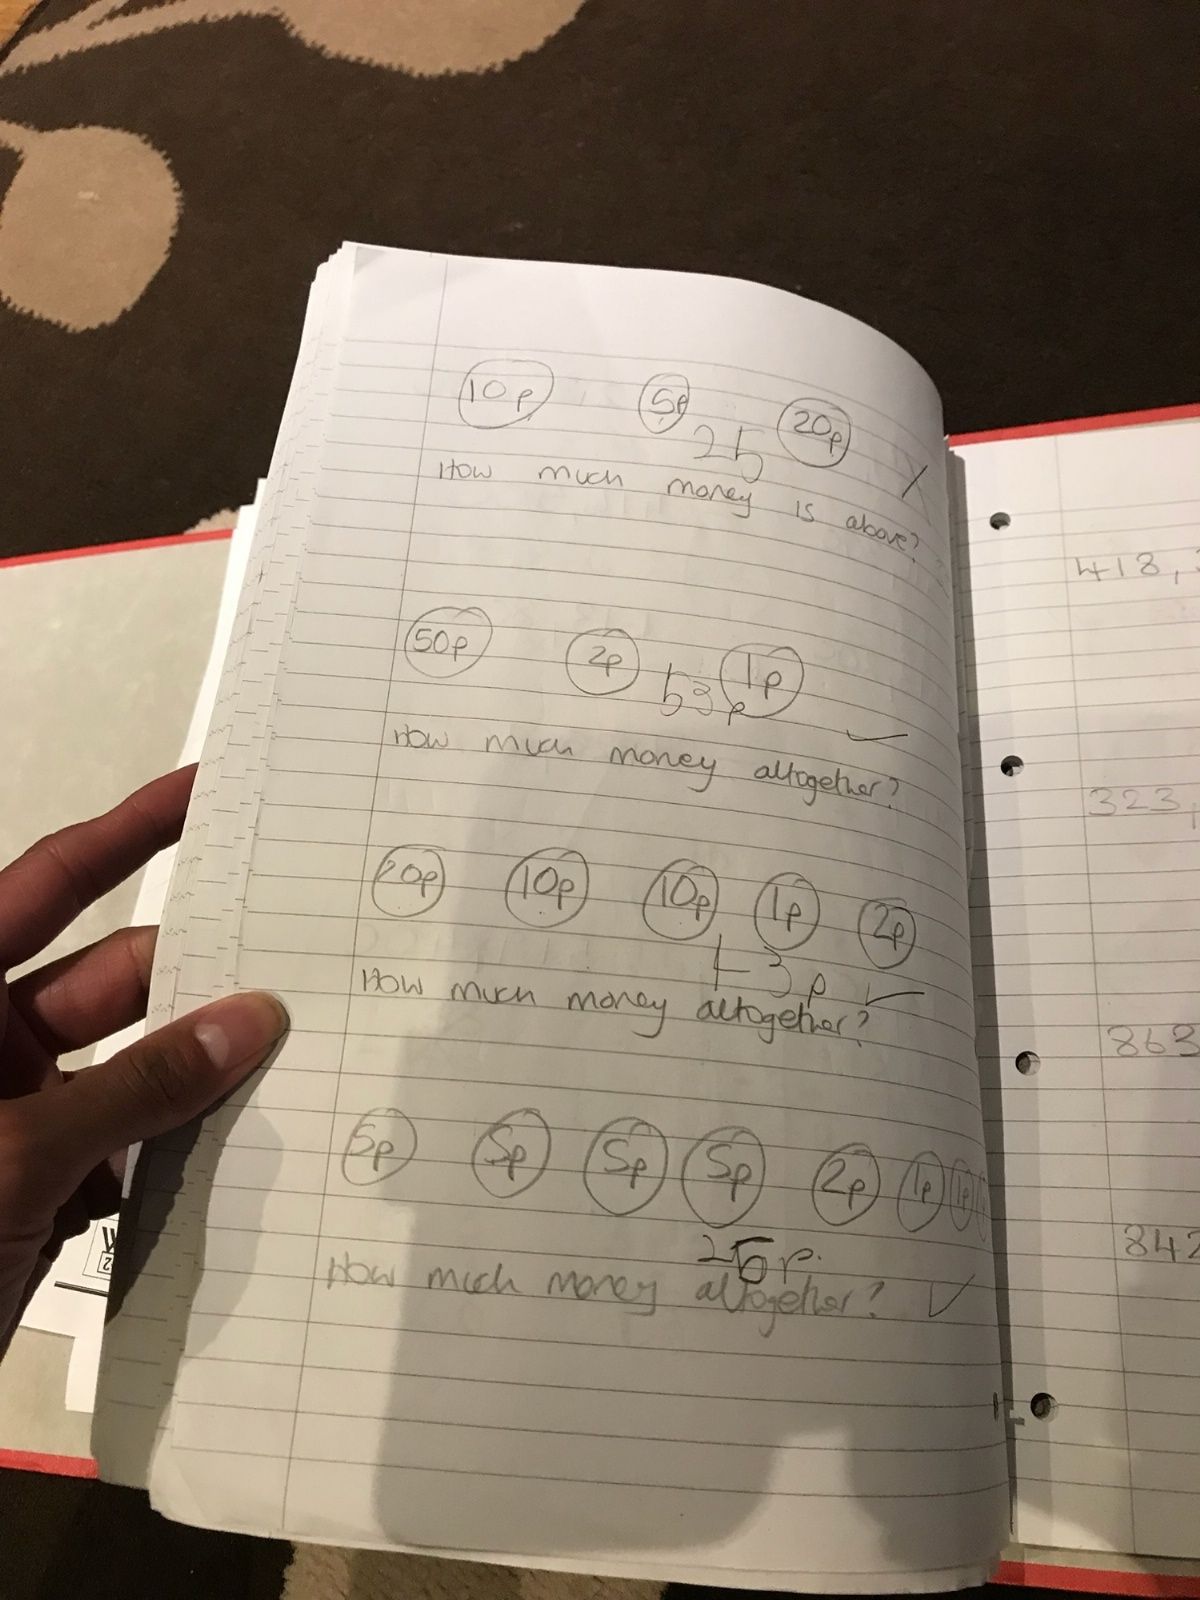 10p 5p 20p
25
How much money is above?
50p 2p 1p
53p
How much money altogether?
20p 10p 10p 1p 2p
43p
How much money altogether?
5p 5p 5p 5p 2p 1p 1p
25p.
How much money altogether?
418,
323,
863
842